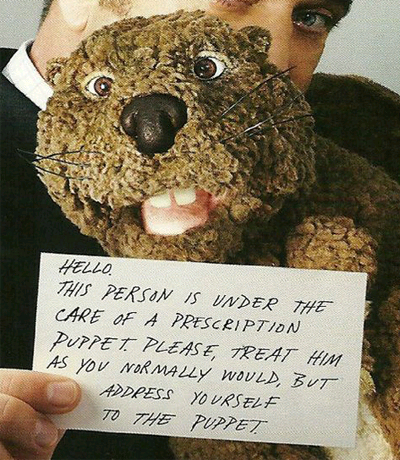 HELLO.
THIS PERSON IS UNDER THE
CARE OF A PRESCRIPTION
PUPPET. PLEASE, TREAT HIM
AS YOU NORMALLY WOULD, BUT
ADDRESS YOURSELF
TO THE PUPPET.